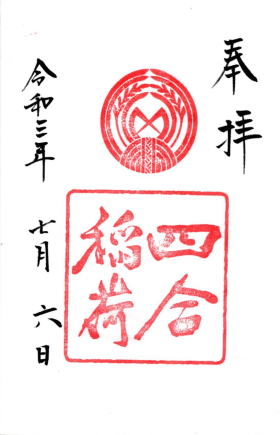 奉拝
四合
稲荷
令和三年
七月六日